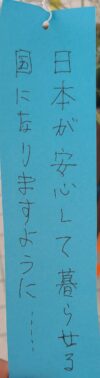 日本が安心して暮らせる
国になりますように……